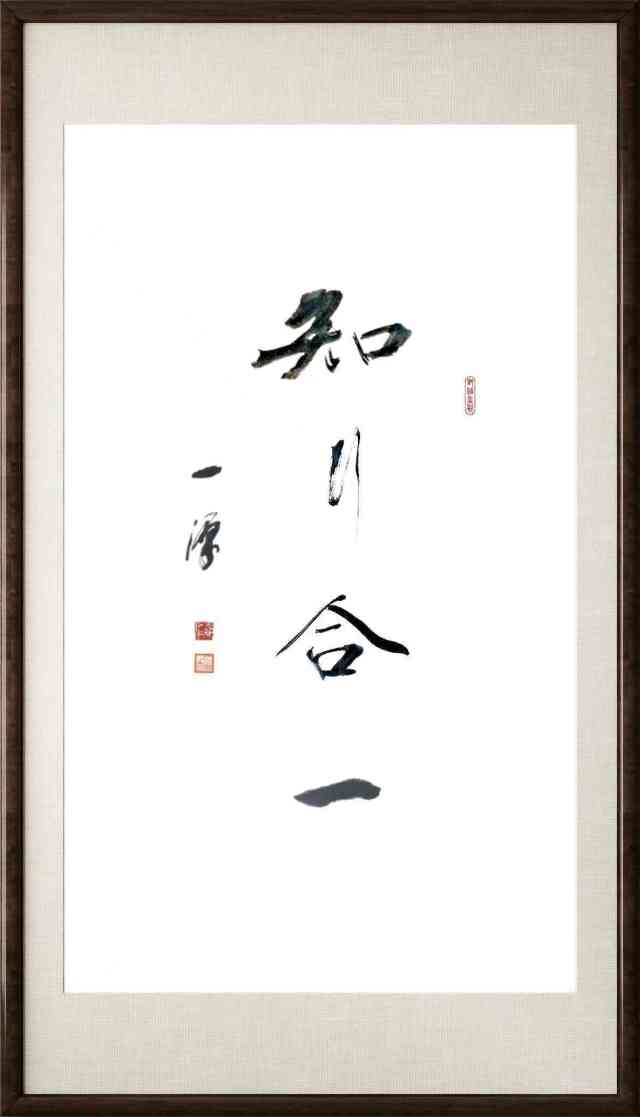 知行合一
一潭